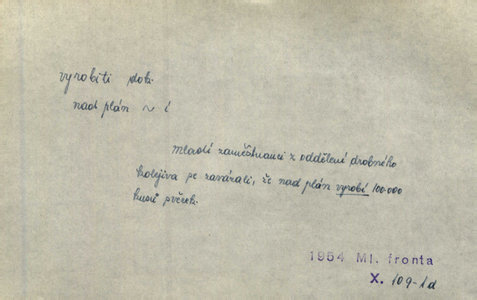 vyrobiti dok.
nad plán ~ i
mladí zaměstnanci z oddělení drobného
kolejiva se zavázali, že nad plán vyrobí 100.000
kusů svěrek.
1954 Ml. fronta
X. 109-1d